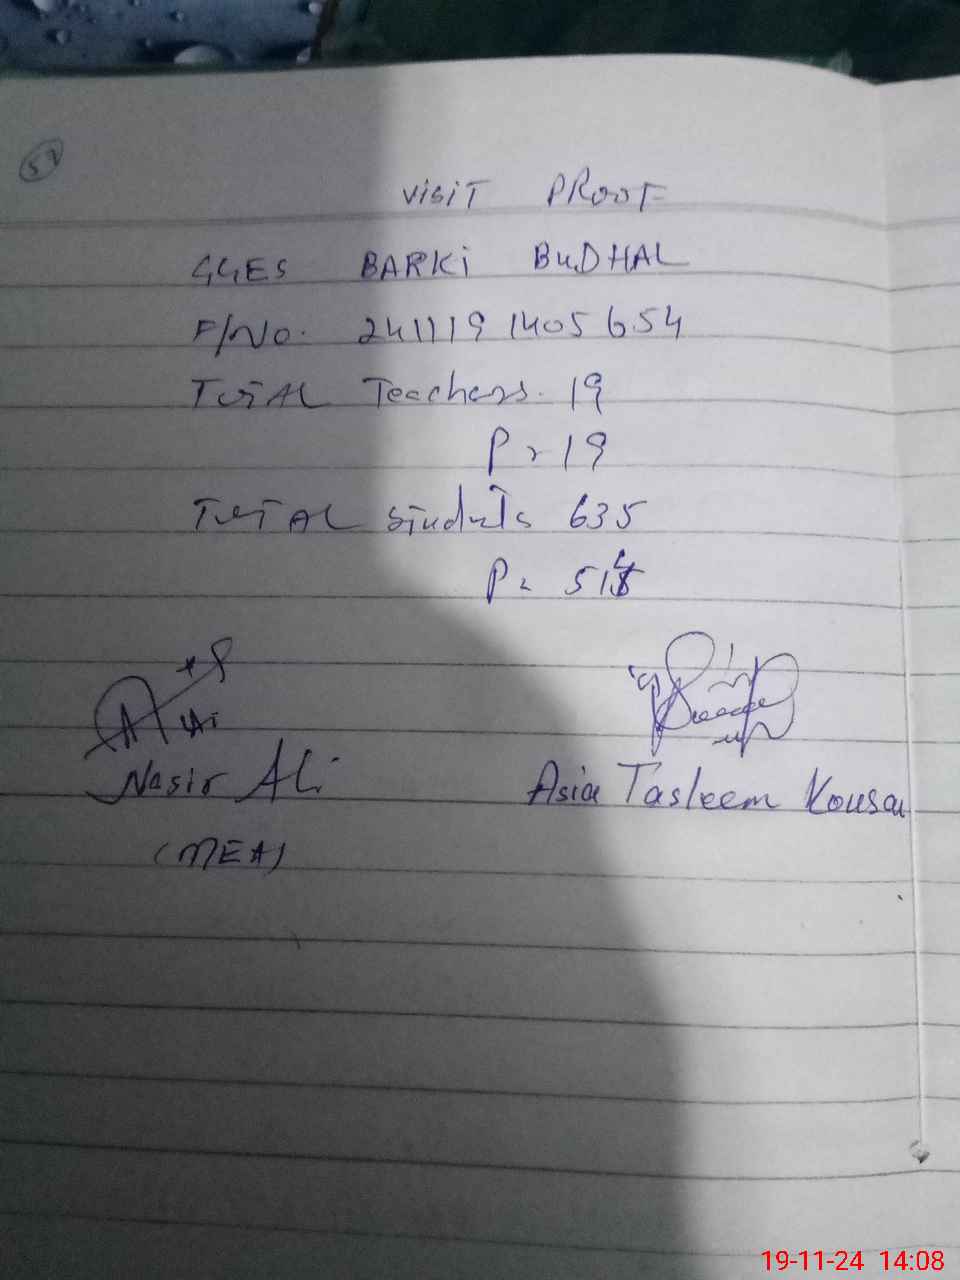 57
VISIT PROOF
GGES BARKI BUDHAL
F/No. 241119 1405 654
TOTAL Teachers. 19
P = 19
TOTAL students 635
P = 514
Nasir Ali
Asia Tasleem Kousar
(MEA)
19-11-24 14:08